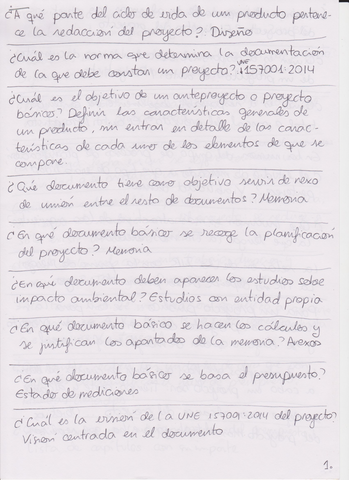 ¿A qué parte del ciclo de vida de un producto pertene-
ce la redacción del proyecto?. Diseño
¿Cuál es la norma que determina la documentación
de la que debe constar un proyecto? UNE 157001-2014
¿Cuál es el objetivo de un anteproyecto o proyecto
básico? Definir las características generales de
un producto, sin entrar en detalle de las carac-
terísticas de cada uno de los elementos de que se
compone.
¿Qué documento tiene como objetivo servir de nexo
de unión entre el resto de documentos? Memoria
¿En qué documento básico se recoge la planificación
del proyecto? Memoria
¿En qué documento deben aparecer los estudios sobre
impacto ambiental? Estudios con entidad propia
¿En qué documento básico se hacen los cálculos y
se justifican los apartados de la memoria? Anexos
¿En qué documento básico se basa el presupuesto?
Estado de mediciones
¿Cuál es la visión de la UNE 157001-2014 del proyecto?
Visión centrada en el documento
1.